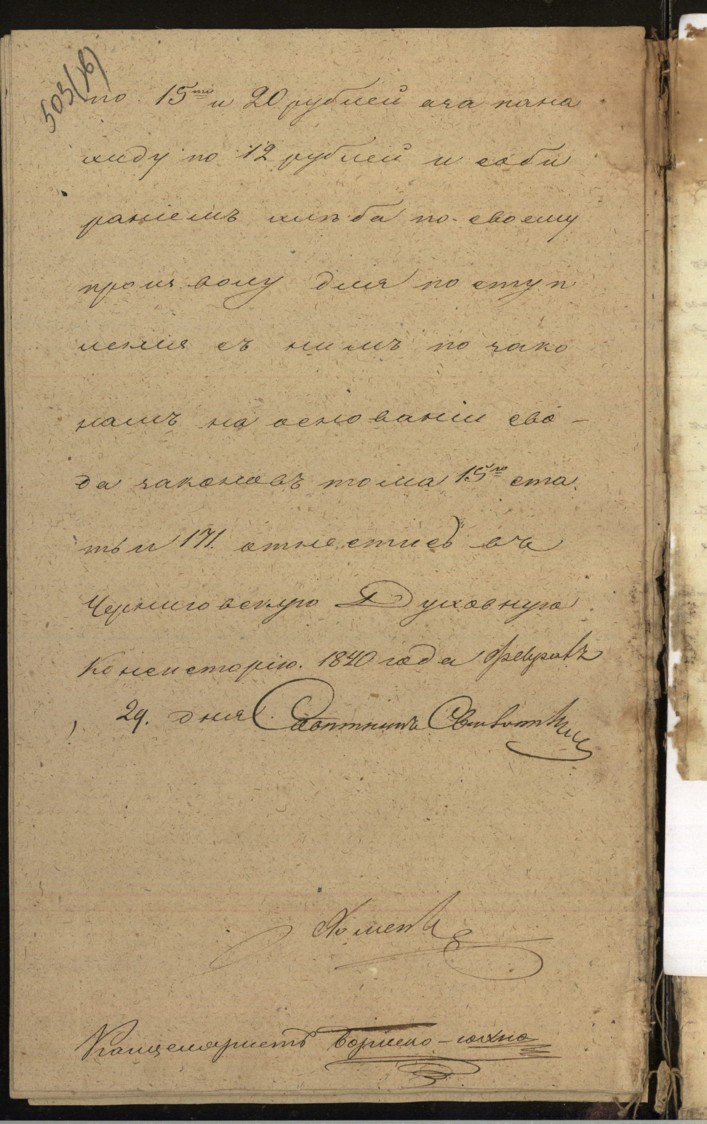 503(б)
по 15ти и 20 рублей а за пана
хиду по 12 рублей и соби
раніемъ хлѣба по своему
произволу для поступ
ленія съ нимъ по зако
намъ на основаніи сво-
да законовъ тома 15го ста
тьи 171. отнестись въ
Черниговскую Духовную
Консисторію. 1840 года февраля
29. дня Совѣтникъ
Хоменко
Канцеляристъ